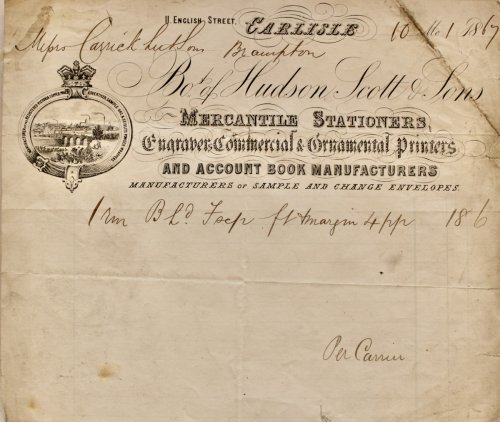 11 English Street, Carlisle 10 Mo 1 1867
Messrs Carrick & Sons Brampton
Bot. of Hudson Scott & Sons
Mercantile Stationers,
Engravers, Commercial & Ornamental Printers
AND ACCOUNT BOOK MANUFACTURERS
MANUFACTURERS OF SAMPLE AND CHANGE ENVELOPES.
1 rm B Ld Fscp ft margin 4pp 18 6
Per Carrier